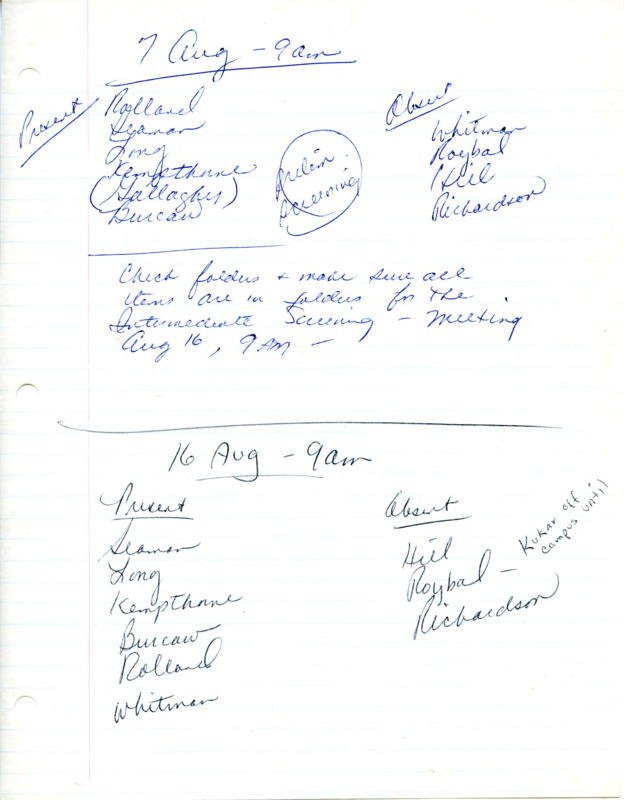 7 Aug - 9am
Present
Rolland
Seaman
Long
Kempthorne
(Gallagher)
Burcaw
Prelim
Screening
Absent
Whitman
Roybal
Hill
Richardson
Check folders + make sure all
items are in folders for the
Intermediate Screening - Meeting
Aug 16, 9 AM -
16 Aug - 9am
Present
Seaman
Long
Kempthorne
Burcaw
Rolland
Whitman
Absent
Hill
Roybal - Kukar off
campus until
Richardson